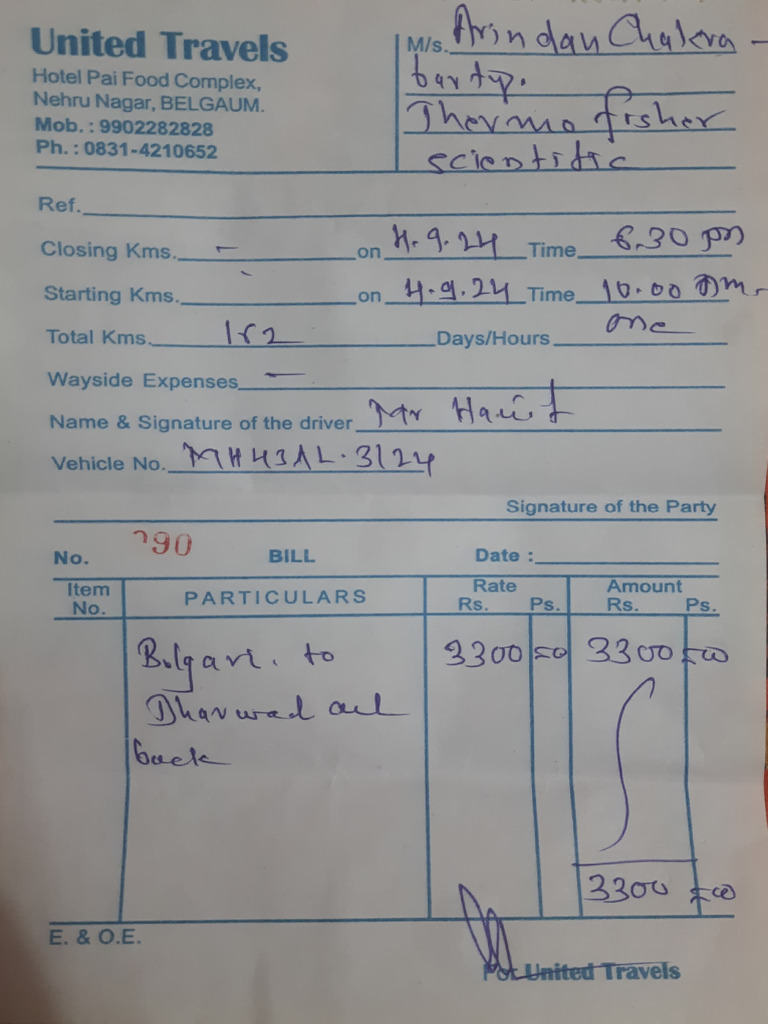 United Travels
Hotel Pai Food Complex,
Nehru Nagar, BELGAUM.
Mob. : 9902282828
Ph. : 0831-4210652
M/s. Arindan Chakra-
barty.
Thermo fisher
scientific
Ref.
Closing Kms. - on 4.9.24 Time 6.30 pm
Starting Kms. - on 4.9.24 Time 10.00 Am.
Total Kms. 182 Days/Hours one
Wayside Expenses -
Name & Signature of the driver Mr
Vehicle No. MH43AL.3124
Signature of the Party
No. 90 BILL Date :
Item No. PARTICULARS Rate Rs. Ps. Amount Rs. Ps.
to 3300 3300
Dharwad and
back
3300
E. & O.E.
For United Travels